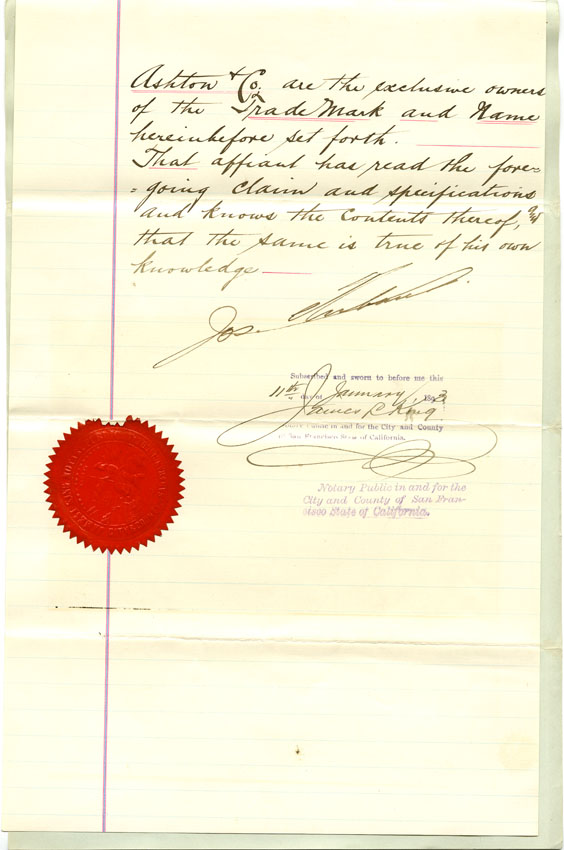 Ashton & Co. are the exclusive owners
of the Trade Mark and Name
hereinbefore set forth.
That affiant has read the fore=
=going claim and specifications
and knows the Contents thereof, and
that the same is true of his own
knowledge
Jos.
Subscribed and sworn to before me this
11th day of January 1893
James L. King
Notary Public in and for the City and County
of San Francisco State of California.
Notary Public in and for the
City and County of San Fran-
cisco State of California.